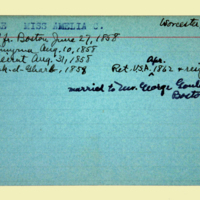 MISS AMELIA C.
Worceste
fr. Boston June 27, 1858
myrna Aug. 10, 1858
Aug. 31, 1858
k-d-Gharb, 1858
Ret. U.S.A. Apr. 1862 &
married to Mr. George
Bosto